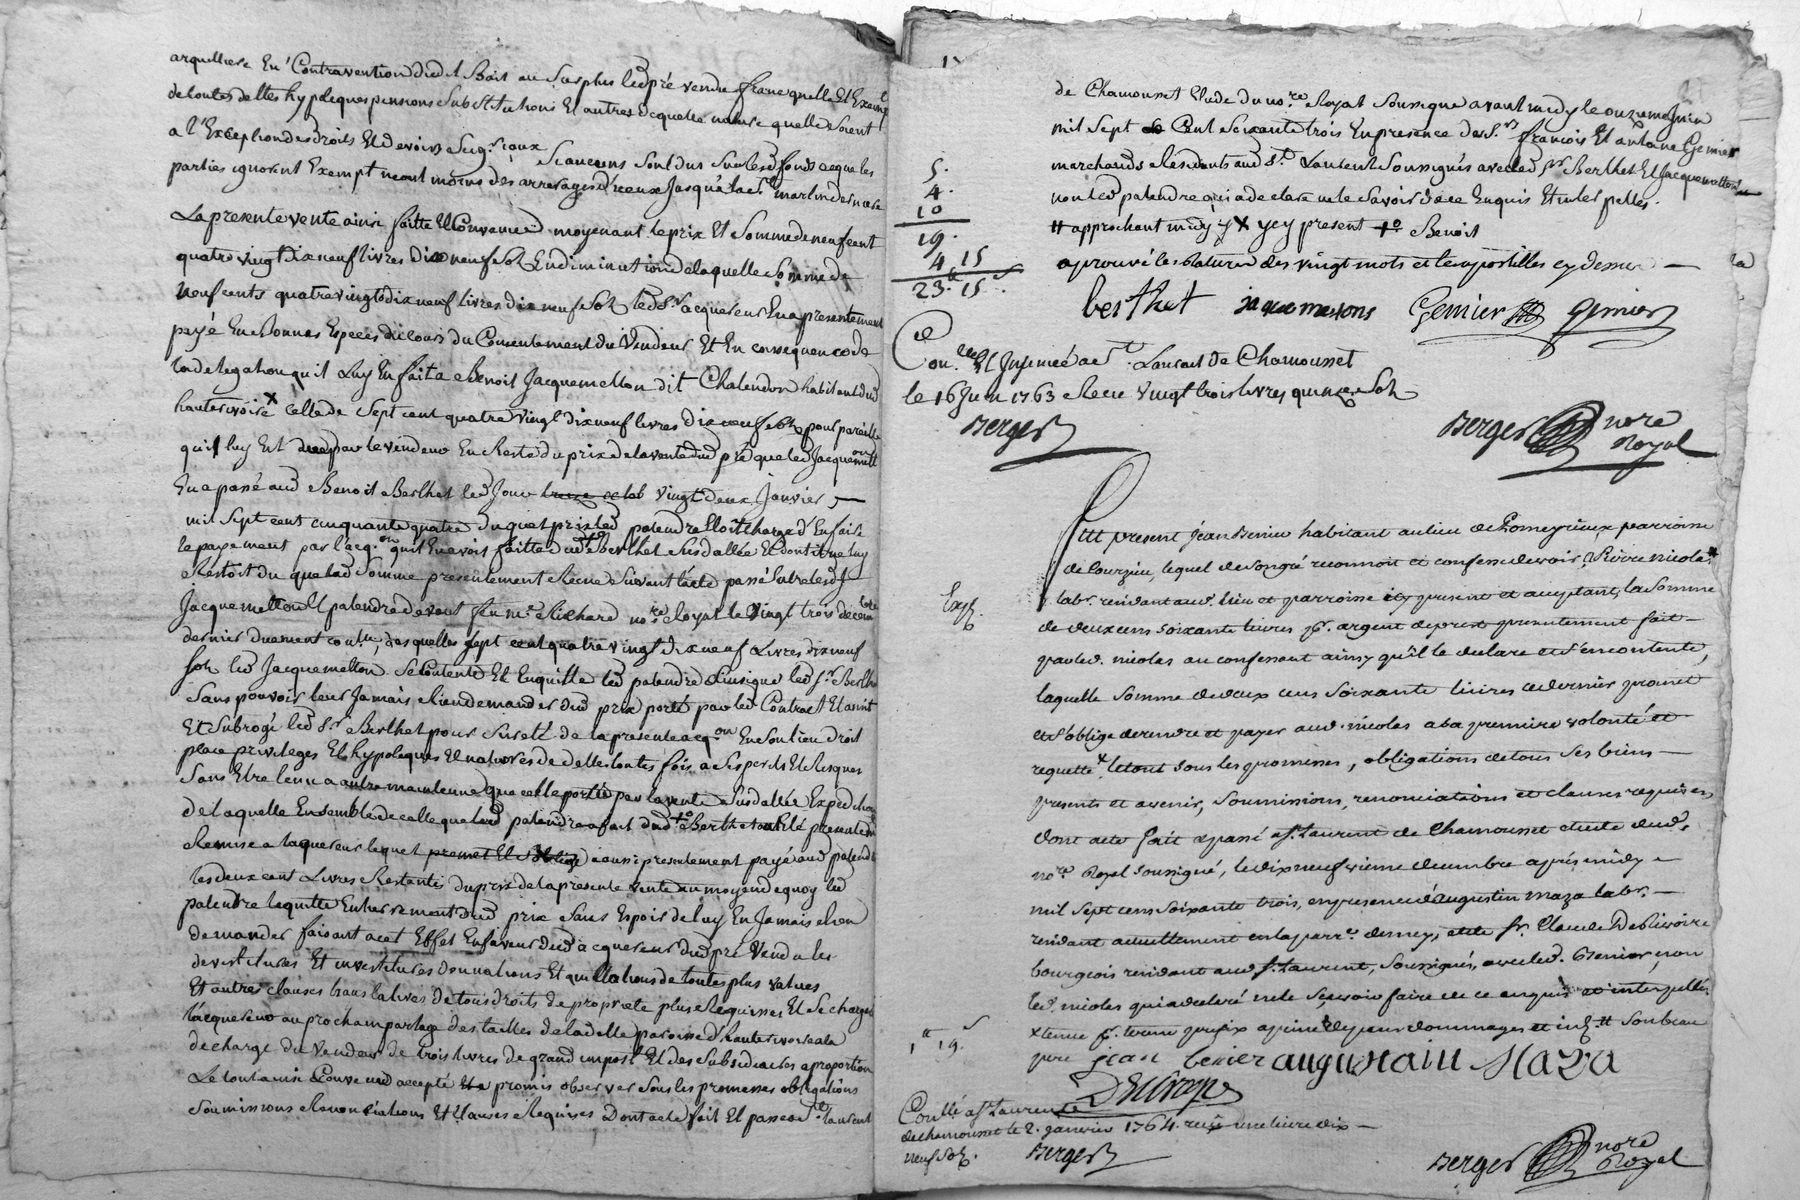 arquilliere En Contravention dud Bail au Surplus led pré vendu franc quelle Et Exempt
de toutes dettes hypoteques pensions Substitutions Et autres de quelle nature quelle Soient
a l'Exception des Droits Et devoirs Seig.riaux Si aucuns Sont dus Sur led fonds ce que les
parties ignorent Exempt neant moins des arrerages d'iceux Jusqu'a la St martin derniere
La presente vente ainsi faitte Et Convenue moyenant le prix Et Somme de neuf cent
quatre vingt dix neuf livres dix neuf Sols En diminution de laquelle Somme de
neuf cents quatre vingt dix neuf livres dix neuf Sols led Sr acquereur En a presentement
payé En bonnes Especes du Cours du Consentement du Vendeur Et En consequence de
la delegation qu'il Luy En fait a Benoit Jacquemetton dit Chalendon habitant dud
hauterivoire x Celle de Sept cent quatre Vingt dix neuf livres dix neuf Sols pour pareille
qui luy Est due par le vendeur En Reste du prix de la vente dud pré que led Jacquemetton
En a passé aud Benoit Berthet led Jour vingt deux Janvier
mil Sept cent cinquante quatre du quel prix led palendre Etoit chargé d'En faire
le payement par l'acq.on qu'il En avoit faitte dud Berthet Susdattée Et dont il ne luy
Restoit du que lad Somme presentement Recue Suivant l'acte passé Entre led
Jacquemetton Et palendre devant feu me Richard no.re Royal le Vingt trois decembre
dernier duement con.lle, desquelles Sept cent quatre vingt dix neuf Livres dix neuf
Sols led Jacquemetton Se Contente Et En quitte led palendre Ainsi que led Sr Berthet
Sans pouvoir leur Jamais Rien demander dud prix porté par led Contract Et a mis
Et Subrogé led Sr Berthet pour Sureté de la presente acq.on En Son lieu droit
place privileges Et hypoteques Et nature de dette toutes fois a Ses perils Et Risques
Sans Etre tenu a autre maintenue que celle portée par la vente Susdattée Expedition
de laquelle Ensemble de celle que led palendre a fait dud Berthet a Eté presentement
Remise a l'acquereur lequel promet Et S'oblige a aussi presentement payé aud palendre
les deux cent Livres Restantes du prix de la presente vente au moyen de quoy led
palendre le quitte Entierement dud prix Sans Espoir de luy En Jamais Rien
demander faisant a cet Effet En faveur dud acquereur dud pré Vendu les
devestitures Et investitures donnations Et quittations de toutes plus values
Et autres clauses translatives de tous droits de propriété plus Requises Et Se chargera
l'acquereur au prochain partage des tailles de lad paroisse d'hauterivoire a la
decharge du Vendeur de trois livres de grand impost Et des Subsidiaires a proportion
Le tout ainsi Convenu accepté Et promis observer Sous les promesses obligations
Soumissions Renonciations Et Clauses Requises Dont acte fait Et passé a St Laurent
de Chamousset Etude du no.re Royal Soussigné avant midy le onze Juin
mil Sept Cent Soixante trois En presence des S.rs françois Et antoine Genier
marchands Residants aud St Laurent Soussignés avec led Sr Berthet Et Jacquemetton
non led palendre qui a declaré ne le Savoir de ce Enquis Et interpellés.
# approchant midy x y present to Benoit
aprouvé les ratures des vingt mots et les apostilles cy dessus
5.
4.
10
19.
4 15
23 15
berthet jaquemetons Genier Genier
Con.llé Et Insinué a St Laurent de Chamousset
le 16 Juin 1763 Receu Vingt trois livres quinze Sols
Berger
Berger nore Royal
Exp.
Fut present jean Benier habitant au lieu de Pomeyrieux parroisse
de Courzieu, lequel de Son gré reconnoit et confesse devoir a Pierre nicolas #
labr. residant aud. lieu et parroisse icy present et acceptant, la Somme
de deux cens soixante livres pr. argent de prest presentement fait
par led. nicolas au confessant ainsy qu'il le declare et s'en contente,
laquelle Somme de deux cens Soixante livres ce dernier promet
et s'oblige de rendre et payer aud. nicolas a sa premiere volonté et
requette x le tout sous les promesses, obligations de tous Ses biens
presents et avenir, Soumissions, renonciations et clauses requises,
dont acte fait et passé a St Laurent de Chamousset etude dud.
no.re Royal soussigné, le dix neufvieme decembre aprés midy
mil Sept cens soixante trois, en presence d'augustin maza labr.
residant actuellement en la parr.e desney, et de Sr. Claude Deslivoire
bourgeois residant aud St. Laurent, Soussignés, avec led. Benier, non
led. nicolas qui a declaré ne le Sçavoir faire de ce enquis et interpellé
x tenue pr. terme prefix a peine de tous dommages et int. # Son beau
pere jean benier augustain Maza
1# 19s
Con.llé a St Laurent
de chamousset le 2. janvier 1764. reçu une livre dix
neuf Sols. Berger
Berger nore Royal